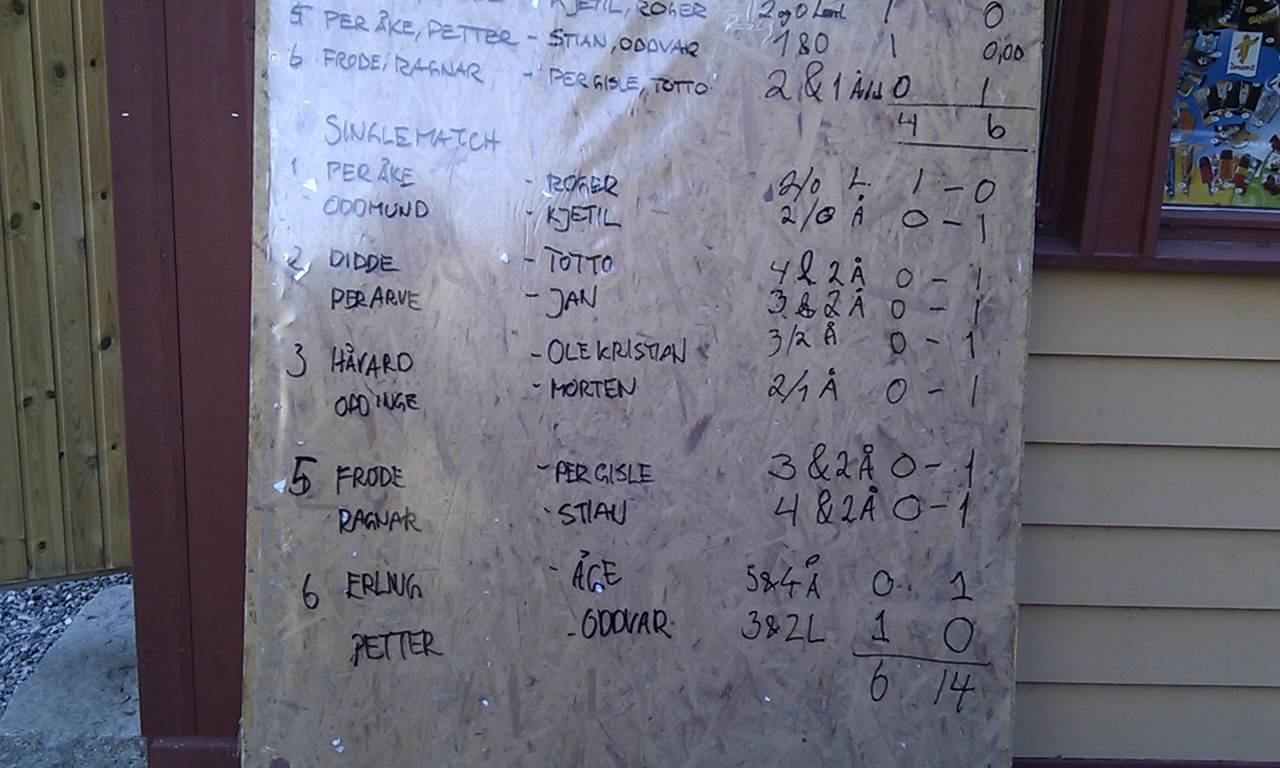 KJETIL, ROGER 1 0
5 PER ÅKE, PETTER - STIAN, ODDVAR 1 & 0 1 0,00
6 FRODE, RAGNAR - PER GISLE, TOTTO 2 & 1 0 1
4 6
SINGLEMATCH
1 PER ÅKE - ROGER 2/0 L 1 - 0
ODDMUND - KJETIL 2/0 Å 0 - 1
2 DIDDE - TOTTO 4 & 2 Å 0 - 1
PER ARVE - JAN 3 & 2 Å 0 - 1
3 HÅVARD - OLE KRISTIAN 3/2 Å 0 - 1
ODD INGE - MORTEN 2/1 Å 0 - 1
5 FRODE - PER GISLE 3 & 2 Å 0 - 1
RAGNAR - STIAN 4 & 2 Å 0 - 1
6 ERLING - ÅGE 5 & 4 Å 0 1
PETTER - ODDVAR 3 & 2 L 1 0
6 14